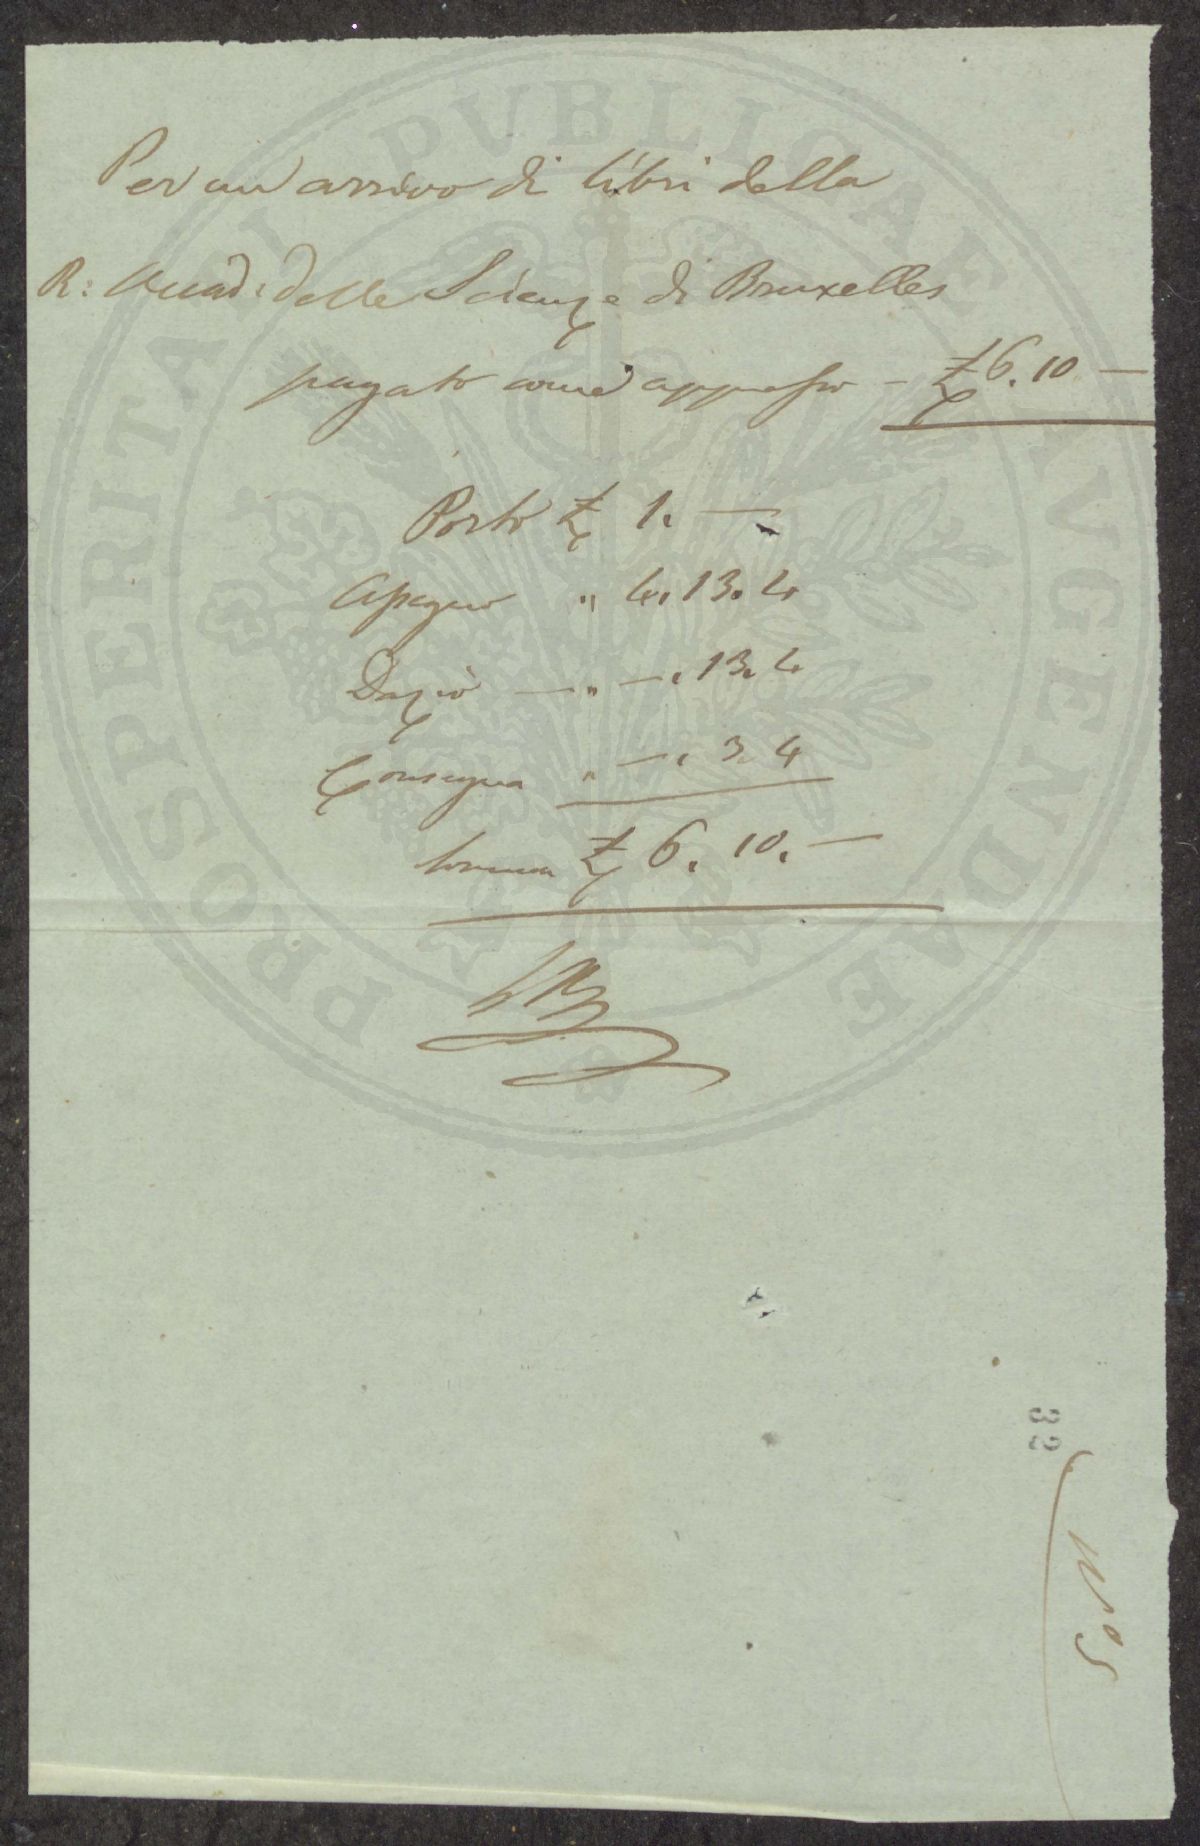 Per un arrivo di libri della
R: Accad: delle Scienze di Bruxelles
pagato come appresso - £ 6. 10 —
Porto £ 1. —
" 4. 13. 4
Dazio — " —. 13. 4
Consegna " —. 3. 4
Somma £ 6. 10. —
32
N° 5
PROSPERITATI PVBLICAE AVGENDAE